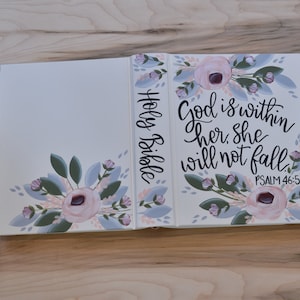 Holy Bible
God is within
her, she
will not fall.
PSALM 46:5